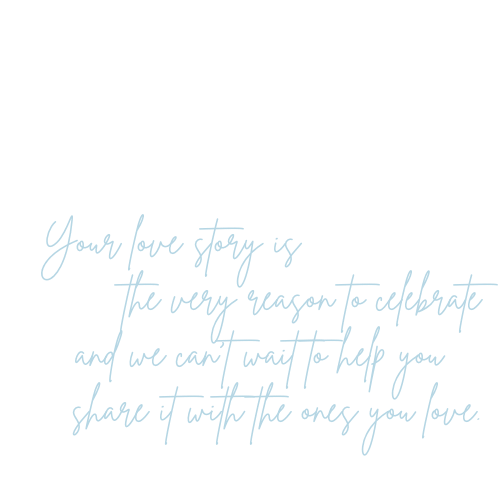 Your love story is
the very reason to celebrate
and we can't wait to help you
share it with the ones you love.